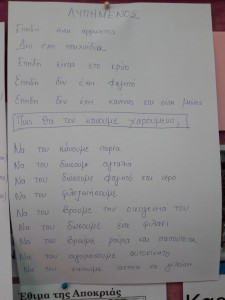 ΛΥΠΗΜΕΝΟΣ
Επειδή είναι άρρωστος
Δεν έχει παιχνίδια
Επειδή είναι στο κρύο
Επειδή δεν έχει φαγητό
Επειδή δεν έχει κανέναν και είναι μόνος
Πως θα τον κάνουμε χαρούμενο;
Να του κάνουμε παρέα
Να του δώσουμε αγκαλιά
Να του δώσουμε φαγητό και νερό
Να τον φιλοξενήσουμε
Να του βρούμε την οικογένειά του
Να του δώσουμε ένα φιλάκι
Να του βρούμε ρούχα και παπούτσια
Να του αγοράσουμε αυτοκίνητο
Να του κάνουμε
Έθιμα της Αποκριάς